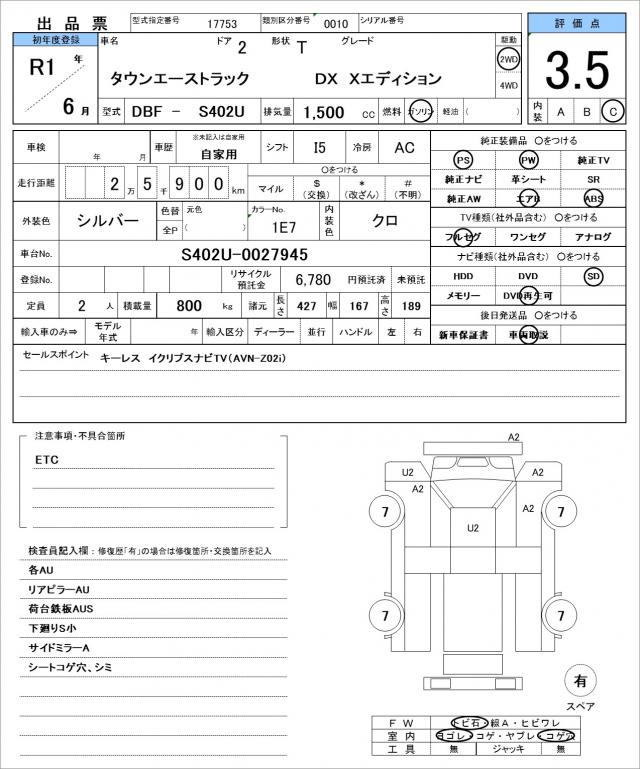 出品票 型式指定番号 17753 類別区分番号 0010 シリアル番号
評価点
初年度登録 車名 ドア 2 形状 T グレード 駆動
R1 年 6 月
タウンエーストラック DX Xエディション
2WD
4WD
3.5
型式 DBF - S402U 排気量 1,500 cc 燃料 ガソリン 軽油 ( )
内装 A B C
車検 年 月 車歴 ※未記入は自家用 自家用 シフト I5 冷房 AC
走行距離 2 万 5 千 9 0 0 km
〇をつける
マイル $ (交換) * (改ざん) # (不明)
外装色 シルバー 色替 全P 元色 ( ) カラーNo. 1E7 内装色 クロ
車台No. S402U-0027945
登録No. リサイクル預託金 6,780 円預託済 未預託
定員 2 人 積載量 800 kg 諸元 長さ 427 幅 167 高さ 189
輸入車のみ⇒ モデル年式 年 輸入区分 ディーラー 並行 ハンドル 左 右
純正装備品 〇をつける
PS PW 純正TV
純正ナビ 革シート SR
純正AW エアB ABS
TV種類(社外品含む) 〇をつける
フルセグ ワンセグ アナログ
ナビ種類(社外品含む) 〇をつける
HDD DVD SD
メモリー DVD再生可
後日発送品 〇をつける
新車保証書 車両取説
セールスポイント キーレス イクリプスナビTV(AVN-Z02i)
注意事項・不具合箇所
ETC
検査員記入欄：修復歴「有」の場合は修復箇所・交換箇所を記入
各AU
リアピラーAU
荷台鉄板AUS
下廻りS小
サイドミラーA
シートコゲ穴、シミ
A2
U2 A2
A2 A2
7 U2 7
7 7
有
スペア
FW トビ石・線A・ヒビワレ
室内 ヨゴレ・コゲ・ヤブレ・コゲ穴
工具 無 ジャッキ 無